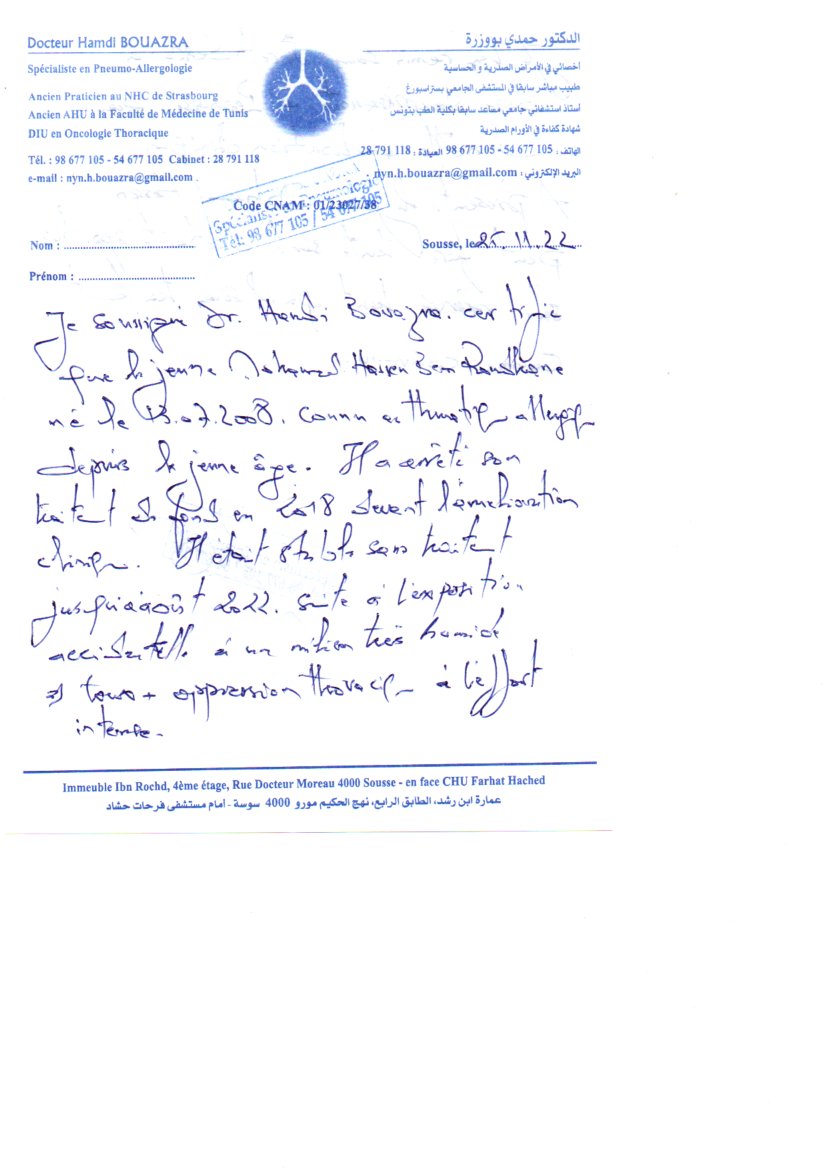 Docteur Hamdi BOUAZRA
الدكتور حمدي بووزرة
Spécialiste en Pneumo-Allergologie
أخصائي في الأمراض الصدرية و الحساسية
Ancien Praticien au NHC de Strasbourg
طبيب مباشر سابقا في المستشفى الجامعي بستراسبورغ
Ancien AHU à la Faculté de Médecine de Tunis
أستاذ استشفائي جامعي مساعد سابقا بكلية الطب بتونس
DIU en Oncologie Thoracique
شهادة كفاءة في الأورام الصدرية
Tél. : 98 677 105 - 54 677 105 Cabinet : 28 791 118
الهاتف : 98 677 105 - 54 677 105 العيادة : 28 791 118
e-mail : nyn.h.bouazra@gmail.com
البريد الإلكتروني : nyn.h.bouazra@gmail.com
Code CNAM : 01/23027/38
Tél: 98 677 105 / 54 677 105
Nom :
Sousse, le 25.11.22
Prénom :
Je soussigné Dr. Hamdi Bouazra. certifie
que le jeune Mohamed Hassen Ben Romdhane
né le 13.07.2008. connu asthmatiq allergiq
depuis le jeune âge. Il a arrêté son
traitet de fond en 2018 devant l'amélioration
cliniq. Il était stable sans traitet
jusqu'à août 2022. suite à l'exposition
accidentelle à un milieu très humide
=> toux + oppression thoraciq à l'effort
intense.
Immeuble Ibn Rochd, 4ème étage, Rue Docteur Moreau 4000 Sousse - en face CHU Farhat Hached
عمارة ابن رشد، الطابق الرابع، نهج الحكيم مورو 4000 سوسة - أمام مستشفى فرحات حشاد